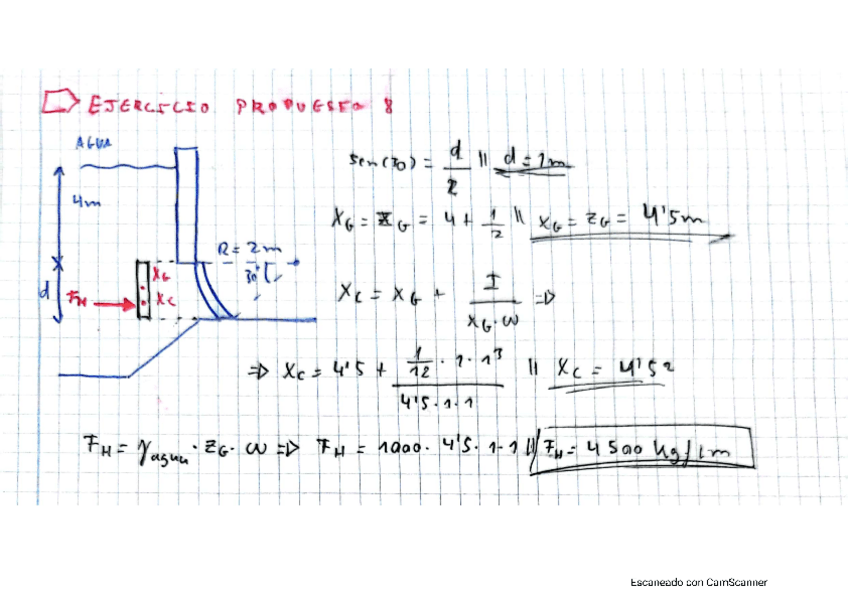 EJERCICIO PROPUESTO 8
AGUA
4m
d
R = 2m
30°
XG
XC
FH
sen(30) = d/2 || d = 1m
XG = ZG = 4 + 1/2 || XG = ZG = 4'5m
XC = XG + I/(XG·ω) ⇒
⇒ XC = 4'5 + (1/12 · 1 · 1³)/(4'5 · 1 · 1) || XC = 4'52
FH = γagua · ZG · ω ⇒ FH = 1000 · 4'5 · 1·1 || FH = 4500 kg/1m
Escaneado con CamScanner